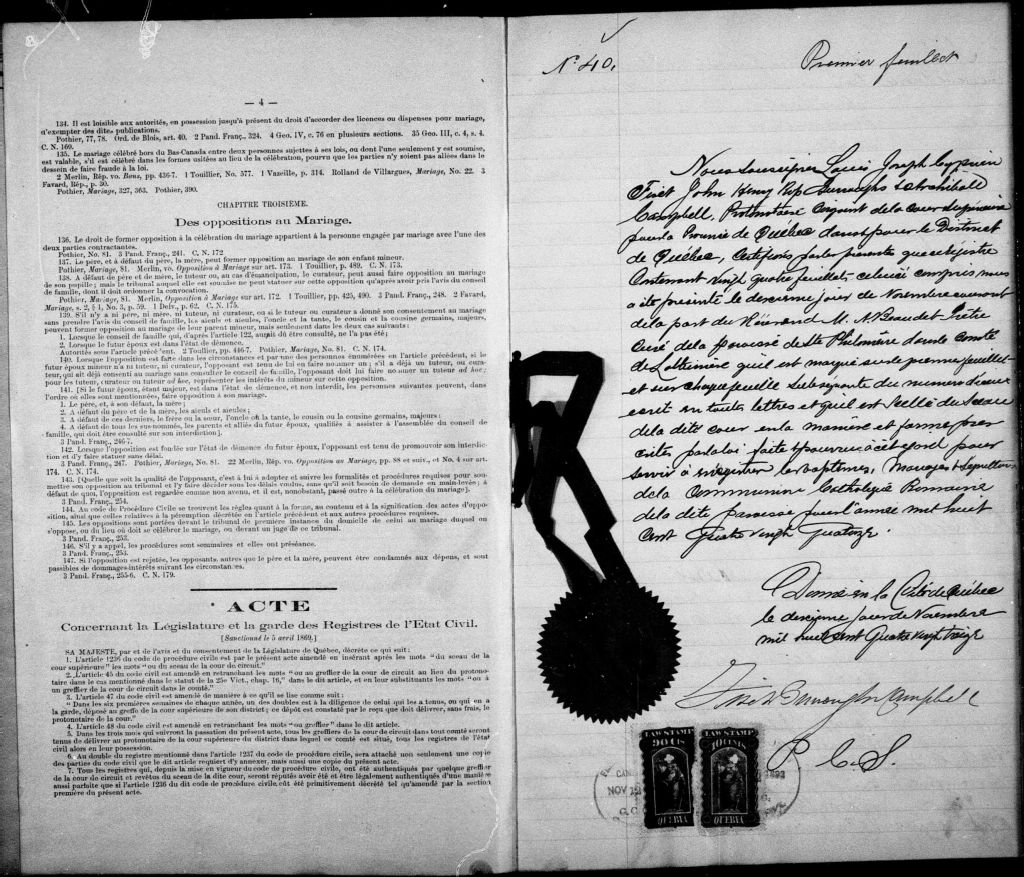 — 4 —
134. Il est loisible aux autorités, en possession jusqu'à présent du droit d'accorder des licences ou dispenses pour mariage,
d'exempter des dites publications.
Pothier, 77, 78. Ord. de Blois, art. 40. 2 Pand. Franç., 324. 4 Geo. IV, c. 76 en plusieurs sections. 35 Geo. III, c. 4, s. 4.
C. N. 169.
135. Le mariage célébré hors du Bas-Canada entre deux personnes sujettes à ses lois, ou dont l'une seulement y est soumise,
est valable, s'il est célébré dans les formes usitées au lieu de la célébration, pourvu que les parties n'y soient pas allées dans le
dessein de faire fraude à la loi.
2 Merlin, Rép. vo. Bans, pp. 436-7. 1 Touillier, No. 577. 1 Vazeille, p. 314. Rolland de Villargues, Mariage, No. 22. 3
Favard, Rép., p. 30.
Pothier, Mariage, 327, 363. Pothier, 390.
CHAPITRE TROISIÈME.
Des oppositions au Mariage.
136. Le droit de former opposition à la célébration du mariage appartient à la personne engagée par mariage avec l'une des
deux parties contractantes.
Pothier, No. 81. 3 Pand. Franç., 241. C. N. 172.
137. Le père, et à défaut du père, la mère, peut former opposition au mariage de son enfant mineur.
Pothier, Mariage, 81. Merlin, vo. Opposition à Mariage sur art. 173. 1 Touillier, p. 489. C. N. 173.
138. A défaut de père et de mère, le tuteur ou, au cas d'émancipation, le curateur, peut aussi faire opposition au mariage
de son pupille; mais le tribunal auquel elle est soumise ne peut statuer sur cette opposition qu'après avoir pris l'avis du conseil
de famille, dont il doit ordonner la convocation.
Pothier, Mariage, 81. Merlin, Opposition à Mariage sur art. 172. 1 Touillier, pp. 425, 490. 3 Pand. Franç., 248. 2 Favard,
Mariage, s. 2, § 1, No. 3, p. 59. 1 Delv., p. 62. C. N. 175.
139. S'il n'y a ni père, ni mère, ni tuteur, ni curateur, ou si le tuteur ou curateur a donné son consentement au mariage
sans prendre l'avis du conseil de famille, les aïeuls et aïeules, l'oncle et la tante, le cousin et la cousine germains, majeurs,
peuvent former opposition au mariage de leur parent mineur, mais seulement dans les deux cas suivants:
1. Lorsque le conseil de famille qui, d'après l'article 122, aurait dû être consulté, ne l'a pas été;
2. Lorsque le futur époux est dans l'état de démence.
Autorités sous l'article précé'ent. 2 Toullier, pp. 446-7. Pothier, Mariage, No. 81. C. N. 174.
140. Lorsque l'opposition est faite dans les circonstances et par une des personnes énumérées en l'article précédent, si le
futur époux mineur n'a ni tuteur, ni curateur, l'opposant est tenu de lui en faire nommer un; s'il a déjà un tuteur, ou cura-
teur, qui ait déjà consenti au mariage sans consulter le conseil de famille, l'opposant doit lui faire nommer un tuteur ad hoc;
pour les tuteur, curateur ou tuteur ad hoc, représenter les intérêts du mineur sur cette opposition.
141. [Si le futur époux, étant majeur, est dans l'état de démence, et non interdit, les personnes suivantes peuvent, dans
l'ordre où elles sont mentionnées, faire opposition à son mariage.
1. Le père, et, à son défaut, la mère;
2. A défaut du père et de la mère, les aïeuls et aïeules;
3. A défaut de ces derniers, le frère ou la sœur, l'oncle ou la tante, le cousin ou la cousine germains, majeurs;
4. A défaut de tous les sus-nommés, les parents et alliés du futur époux, qualifiés à assister à l'assemblée du conseil de
famille, qui doit être consulté sur son interdiction].
3 Pand. Franç., 246-7.
142. Lorsque l'opposition est fondée sur l'état de démence du futur époux, l'opposant est tenu de promouvoir son interdic-
tion et d'y faire statuer sans délai.
3 Pand. Franç., 247. Pothier, Mariage, No. 81. 22 Merlin, Rép. vo. Opposition au Mariage, pp. 88 et suiv., et No. 4 sur art.
174. C. N. 174.
143. [Quelle que soit la qualité de l'opposant, c'est à lui à adopter et suivre les formalités et procédures requises pour sou-
mettre son opposition au tribunal et l'y faire décider sous les délais voulus, sans qu'il soit besoin de demande en main-levée; à
défaut de quoi, l'opposition est regardée comme non avenu, et il est, nonobstant, passé outre à la célébration du mariage].
3 Pand. Franç., 254.
144. Au code de Procédure Civile se trouvent les règles quant à la forme, au contenu et à la signification des actes d'oppo-
sition, ainsi que celles relatives à la péremption décrétée en l'article précédent et aux autres procédures requises.
145. Les oppositions sont portées devant le tribunal de première instance du domicile de celui au mariage duquel on
s'oppose, ou du lieu où doit se célébrer le mariage, ou devant un juge de ce tribunal.
3 Pand. Franç., 253.
146. S'il y a appel, les procédures sont sommaires et elles ont préséance.
3 Pand. Franç., 253.
147. Si l'opposition est rejetée, les opposants, autres que le père et la mère, peuvent être condamnés aux dépens, et sont
passibles de dommages-intérêts suivant les circonstances.
3 Pand. Franç., 255-6. C. N. 179.
ACTE
Concernant la Législature et la garde des Registres de l'Etat Civil.
[Sanctionné le 5 avril 1869.]
SA MAJESTE, par et de l'avis et du consentement de la Législature de Québec, décrète ce qui suit:
1. L'article 1236 du code de procédure civile est par le présent acte amendé en insérant après les mots "du sceau de la
cour supérieure" les mots "ou du sceau de la cour de circuit."
2. L'article 45 du code civil est amendé en retranchant les mots "ou au greffier de la cour de circuit au lieu du proto-
notaire dans le cas mentionné dans le statut de la 25e Vict., chap. 16," dans le dit article, et en leur substituants les mots "ou à
un greffier de la cour de circuit dans le comté."
3. L'article 47 du code civil est amendé de manière à ce qu'il se lise comme suit:
"Dans les six premières semaines de chaque année, un des doubles est à la diligence de celui qui les a tenus, ou qui en a
la garde, déposé au greffe de la cour supérieure de son district; ce dépôt est constaté par le reçu que doit délivrer, sans frais, le
protonotaire de la cour."
4. L'article 48 du code civil est amendé en retranchant les mots "ou greffier" dans le dit article.
5. Dans les trois mois qui suivront la passation du présent acte, tous les greffiers de la cour de circuit dans tout comté seront
tenus de délivrer au protonotaire de la cour supérieure du district dans lequel ce comté est situé, tous les registres de l'état
civil alors en leur possession.
6. Au double du registre mentionné dans l'article 1237 du code de procédure civile, sera attaché non seulement une copie
des parties du code civil que le dit article requiert d'y annexer, mais aussi une copie du présent acte.
7. Tous les registres qui, depuis la mise en vigueur du code de procédure civile, ont été authentiqués par quelque greffier
de la cour de circuit et revêtus du sceau de la dite cour, seront réputés avoir été et être légalement authentiqués d'une manière
aussi parfaite que si l'article 1236 du dit code de procédure civile eût été primitivement décrété tel qu'amendé par la section
première du présent acte.
No. 40.
Premier feuillet
Nous soussignés Louis Joseph Cyprien
Fiset John Henry Rip Burroughs & Archibald
Campbell, Protonotaire Conjoint de la cour Superieure
pour la Province de Québec dans et pour le District
de Québec, Certifions par les presentes que ce registre
Contenant vingt quatre feuillets, celui ci compris, nous
a été présenté le deuxieme jour de Novembre courant
de la part du Révérend M. N. Beaudet Prêtre
Curé de la paroisse de Ste Philomène dans le Comté
de Lotbinière qu'il est marqué sur le premier feuillet
et sur chaque feuillet subsequents du numero d'iceux
ecrit en toutes lettres et qu'il est scellé du sceau
de la dite cour en la maniere et forme pres
crites par la loi faite et pourvue à cet egard pour
servir à enregistrer les baptêmes, Mariages & Sepultures
de la Communion Catholique Romaine
de la dite paroisse pour l'année mil huit
cent Quatre vingt Quatorze.
Donné en la Cité de Québec
le deuxieme jour de Novembre
mil huit cent Quatre vingt treize
Fiset Burroughs Campbell
P. C. S.
LAW STAMP
90 CTS
QUEBEC
LAW STAMP
10 CENTS
QUEBEC
NOV